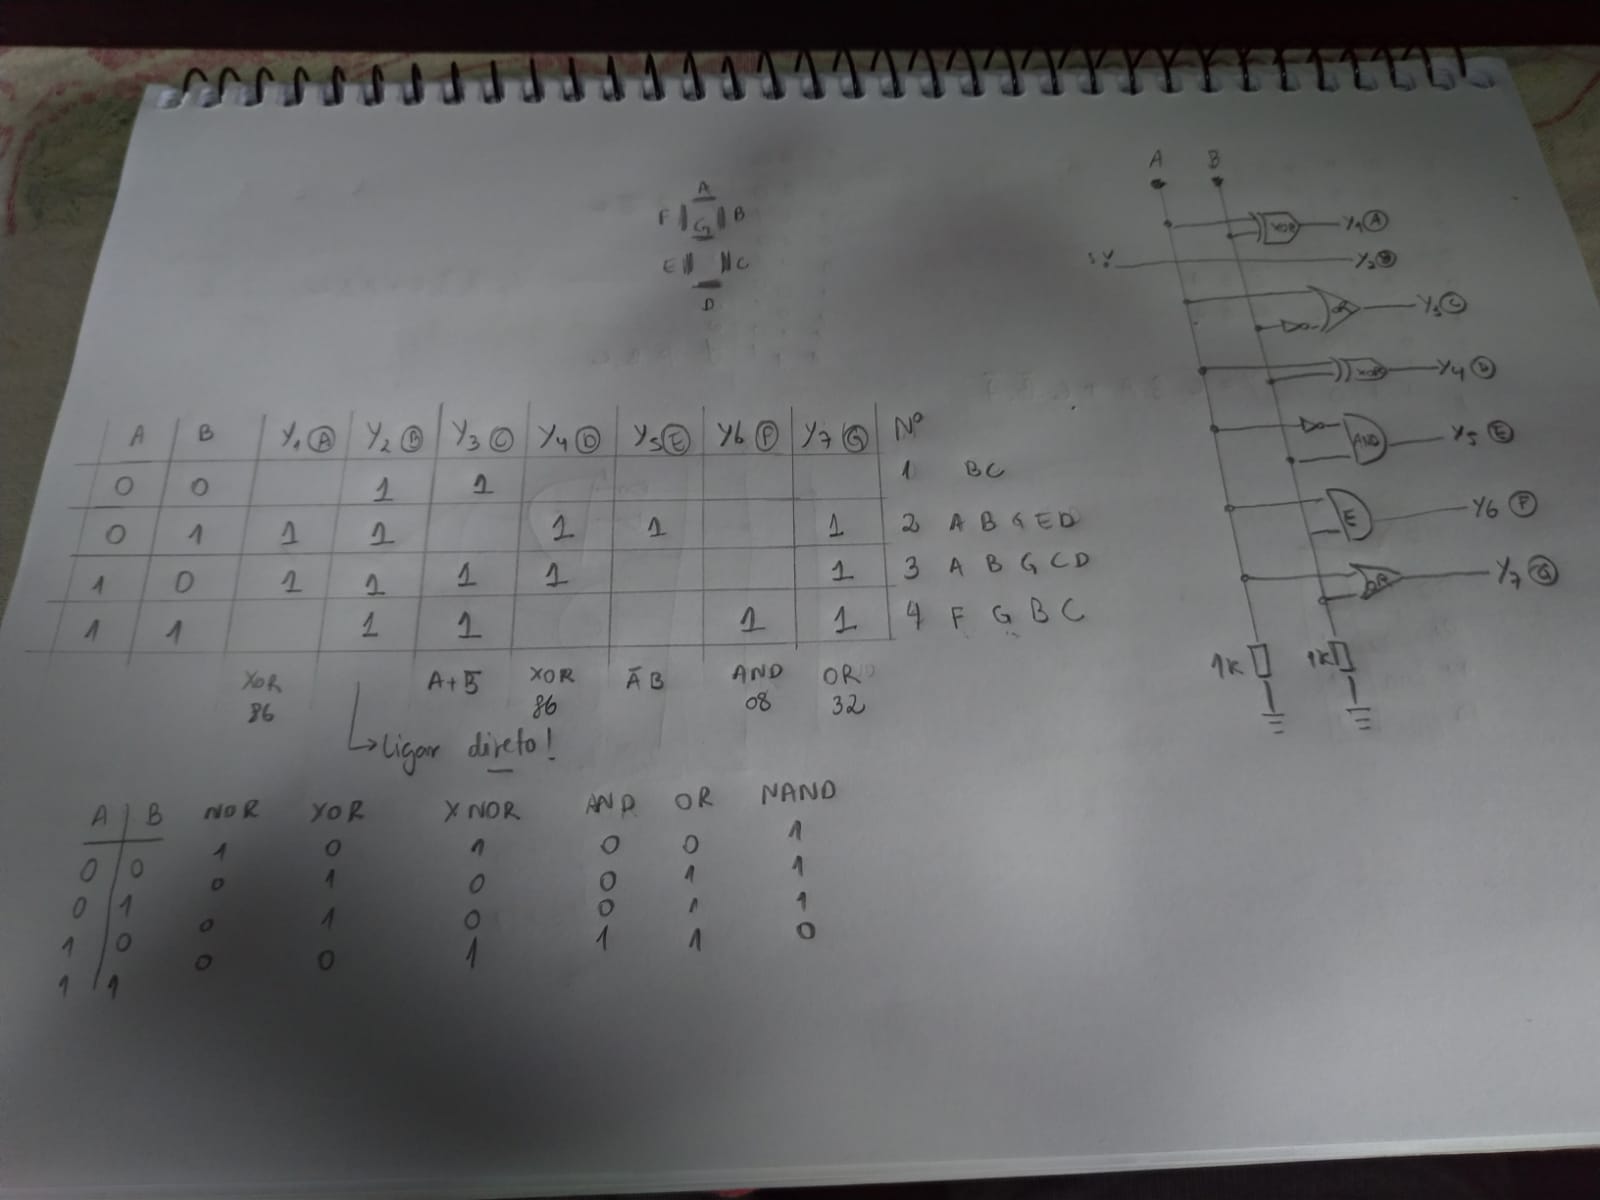 A
F G B
E C
D
A B Y1 (A) Y2 (B) Y3 (C) Y4 (D) Y5 (E) Y6 (F) Y7 (G) Nº
0 0 1 1 1 BC
0 1 1 1 1 1 1 2 A B G E D
1 0 1 1 1 1 1 3 A B G C D
1 1 1 1 1 1 4 F G B C
XOR A+B̅ XOR A̅ B AND OR
86 86 08 32
→ Ligar direto!
A B NOR XOR XNOR AND OR NAND
0 0 1 0 1 0 0 1
0 1 0 1 0 0 1 1
1 0 0 1 0 0 1 1
1 1 0 0 1 1 1 0
A B
XOR Y1 (A)
Y2 (B)
OR Y3 (C)
XOR Y4 (D)
AND Y5 (E)
E Y6 (F)
OR Y7 (G)
1K 1K